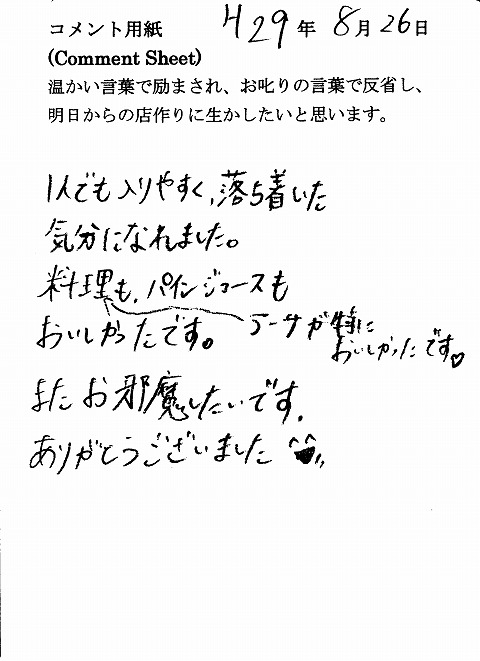 コメント用紙
H29年 8月26日
(Comment Sheet)
温かい言葉で励まされ、お叱りの言葉で反省し、
明日からの店作りに生かしたいと思います。
1人でも入りやすく、落ち着いた
気分になれました。
料理も、パインジュースも
おいしかったです。
アーサが特に
おいしかったです♡
またお邪魔したいです。
ありがとうございました